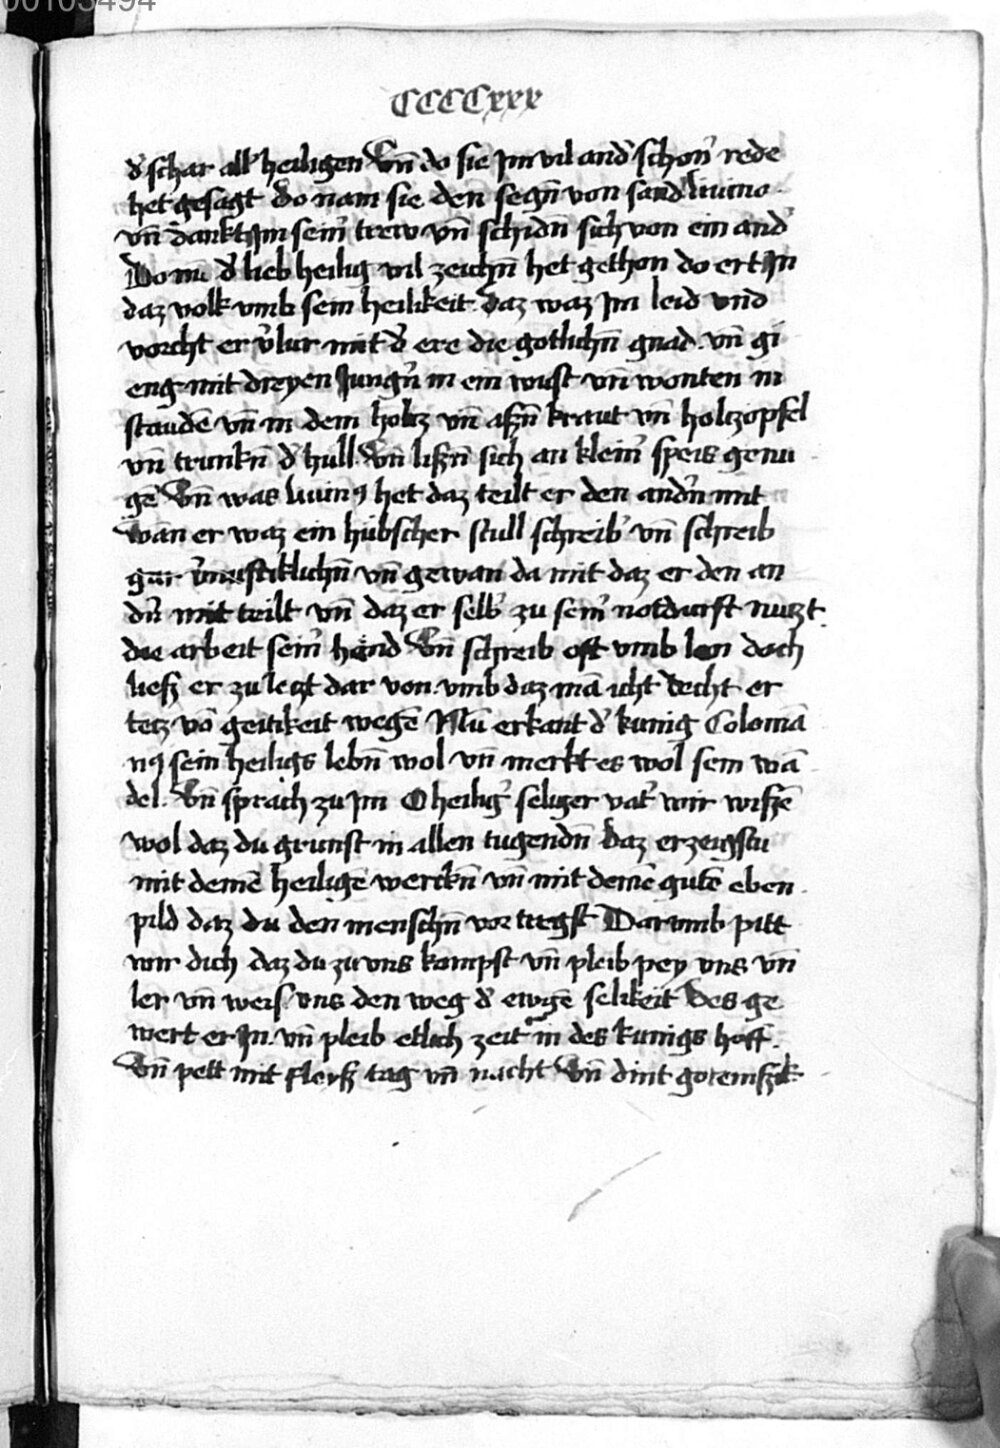 00103494
CCCCxxx
d' schar all' heiligen Vn̄ do sie Jm vil and' schon' rede
het gesagt Do nam sie den segn̄ von sand Liuino
vn̄ dankt Jm sein' trew vn̄ schidn̄ sich von ein and'
Do nu d' lieb heilig vil zeichn̄ het gethon do ert Jn
daz volk vmb sein heilikeit Daz waz Jm leid vnd
vorcht er v'lur mit d' ere die gotlichn̄ gnad. vn̄ gi
eng mit dreyen Jungn̄ in ein wust vn̄ wonten in
staudē vn̄ in dem holtz vn̄ aßn̄ kraut vn̄ holtzopfel
vn̄ trunkn̄ d' hull. Vn̄ lißn̄ sich an klein' speis genu
gē Vn̄ was Liuinꝯ het daz teilt er den andn̄ mit
wan er waz ein hübscher stull schreib' vn̄ schreib
gar v'nuftiklichn̄ vn̄ gewan da mit daz er den an
dn̄ mit teilt vn̄ daz er selb' zu sein' notdurft nutzt.
die arbeit sein' hend Vn̄ schreib oft vmb lon doch
ließ er zu letzt dar von. vmb daz mā icht decht er
tetz vō geitikeit wegē Nū erkant d' kunig Colomā
nꝯ sein heiligs lebn̄ wol vn̄ merkt es wol sein wā
del. Vn̄ sprach zu Jm O heilig' seliger vat' wir wißē
wol daz du grunst in allen tugendn̄ Daz erzeigstu
mit deinē heiligē werckn̄ vn̄ mit deinē gutē eben
pild daz du den menschn̄ vor tregst Darumb pitt
wir dich daz du zu vns kumpst vn̄ pleib pey vns vn̄
ler vn̄ weis vns den weg d' ewigē selikeit Des ge
wert er Jn. vn̄ pleib etlich zeit in des kunigs hoff.
Vn̄ pett mit fleyß tag vn̄ nacht Vn̄ dint got emßik